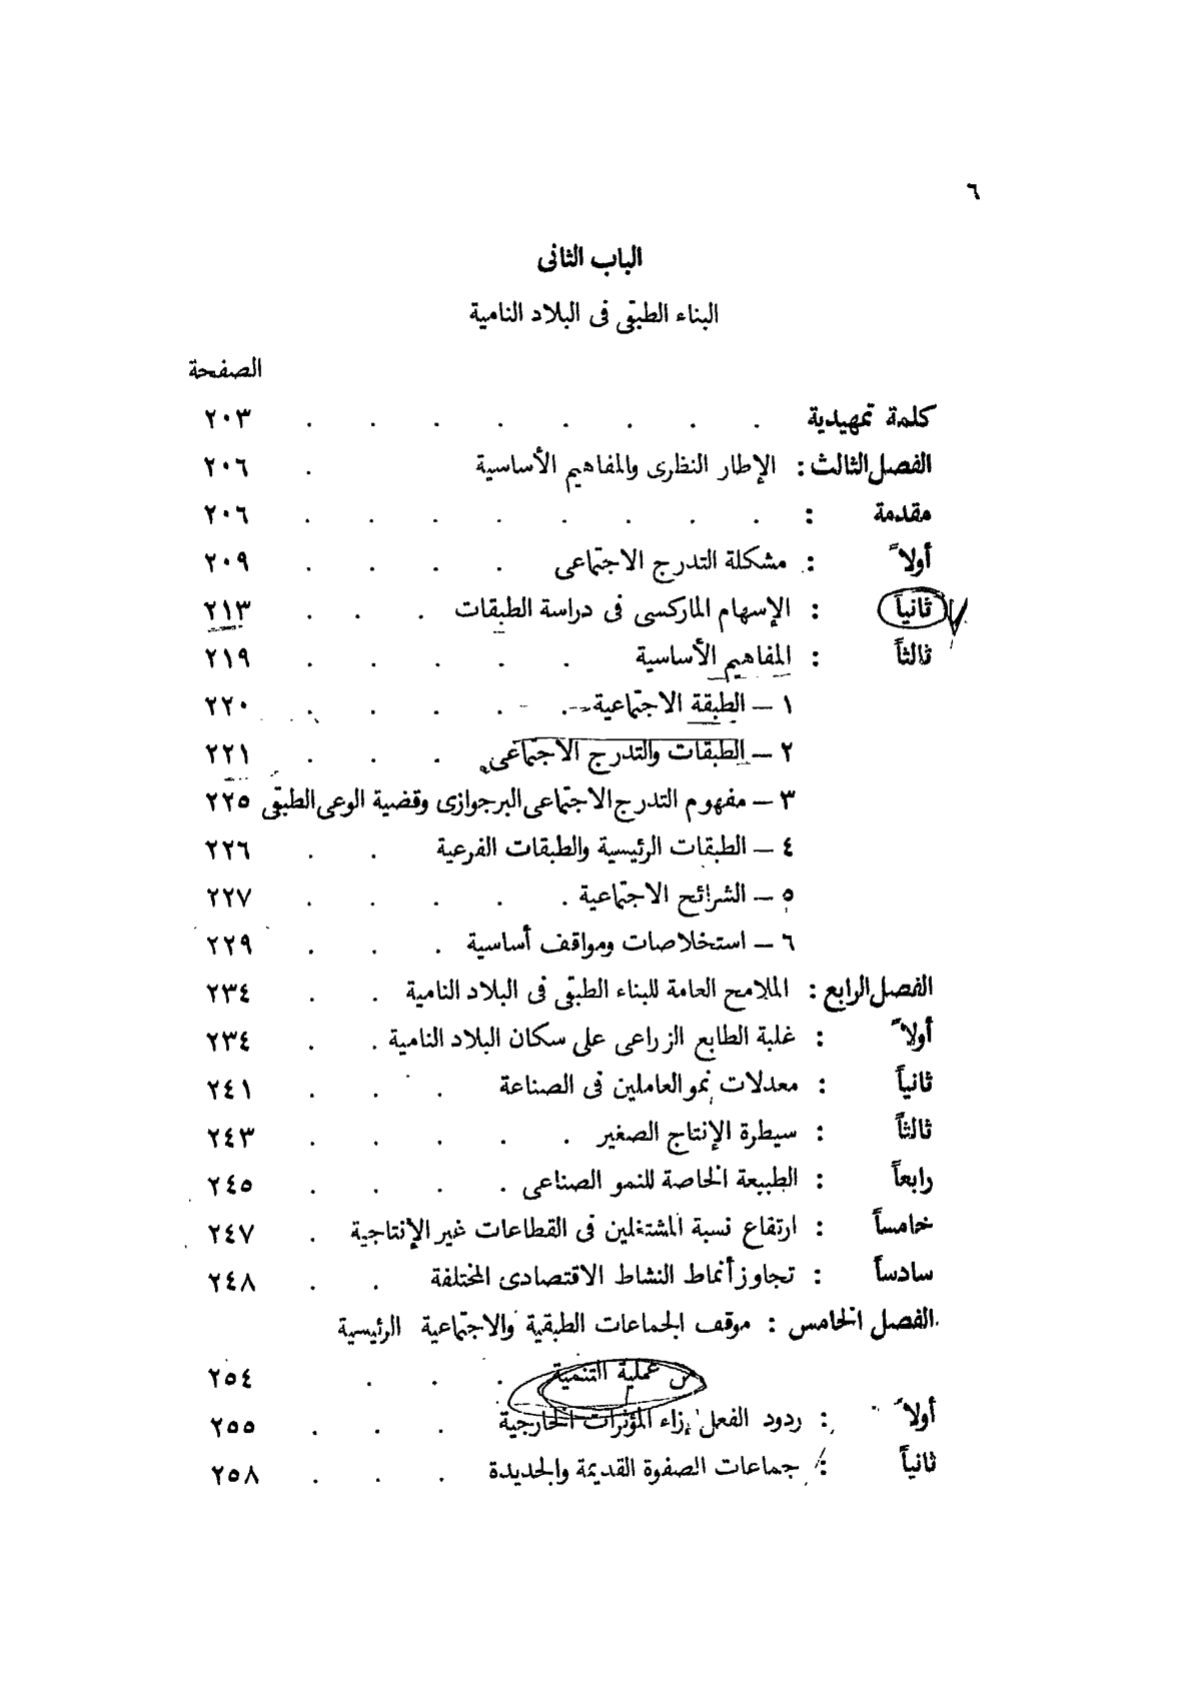 ٦
الباب الثانى
البناء الطبقى فى البلاد النامية
الصفحة
كلمة تمهيدية . . . . . . . . ٢٠٣
الفصل الثالث : الإطار النظرى والمفاهيم الأساسية . ٢٠٦
مقدمة : . . . . . . . . ٢٠٦
أولاً : مشكلة التدرج الاجتماعى . . . . ٢٠٩
ثانياً : الإسهام الماركسى فى دراسة الطبقات . . . ٢١٣
ثالثاً : المفاهيم الأساسية . . . . . ٢١٩
١ – الطبقة الاجتماعية . . . . . ٢٢٠
٢ – الطبقات والتدرج الاجتماعى . . . ٢٢١
٣ – مفهوم التدرج الاجتماعى البرجوازى وقضية الوعى الطبقى ٢٢٥
٤ – الطبقات الرئيسية والطبقات الفرعية . . ٢٢٦
٥ – الشرائح الاجتماعية . . . . . ٢٢٧
٦ – استخلاصات ومواقف أساسية . . . ٢٢٩
الفصل الرابع : الملامح العامة للبناء الطبقى فى البلاد النامية . . ٢٣٤
أولاً : غلبة الطابع الزراعى على سكان البلاد النامية . . ٢٣٤
ثانياً : معدلات نمو العاملين فى الصناعة . . . ٢٤١
ثالثاً : سيطرة الإنتاج الصغير . . . . . ٢٤٣
رابعاً : الطبيعة الخاصة للنمو الصناعى . . . . ٢٤٥
خامساً : ارتفاع نسبة المشتغلين فى القطاعات غير الإنتاجية . ٢٤٧
سادساً : تجاوز أنماط النشاط الاقتصادى المختلفة . . ٢٤٨
الفصل الخامس : موقف الجماعات الطبقية والاجتماعية الرئيسية
من عملية التنمية . . . ٢٥٤
أولاً : ردود الفعل إزاء المؤثرات الخارجية . . . ٢٥٥
ثانياً : جماعات الصفوة القديمة والجديدة . . . ٢٥٨